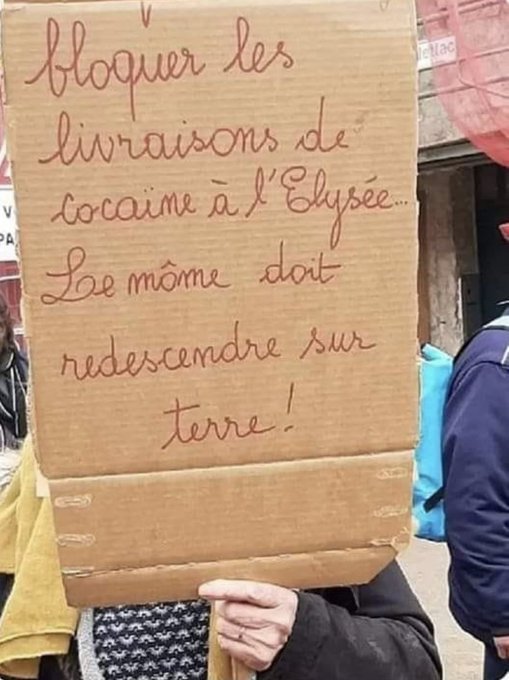 bloquer les
livraisons de
cocaïne à l'Elysée...
Le môme doit
redescendre sur
terre!